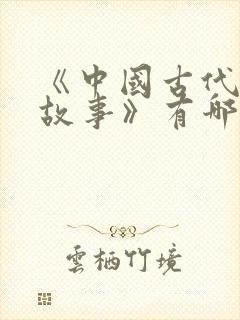 《中國古代
故事》有哪
雲栖竹境